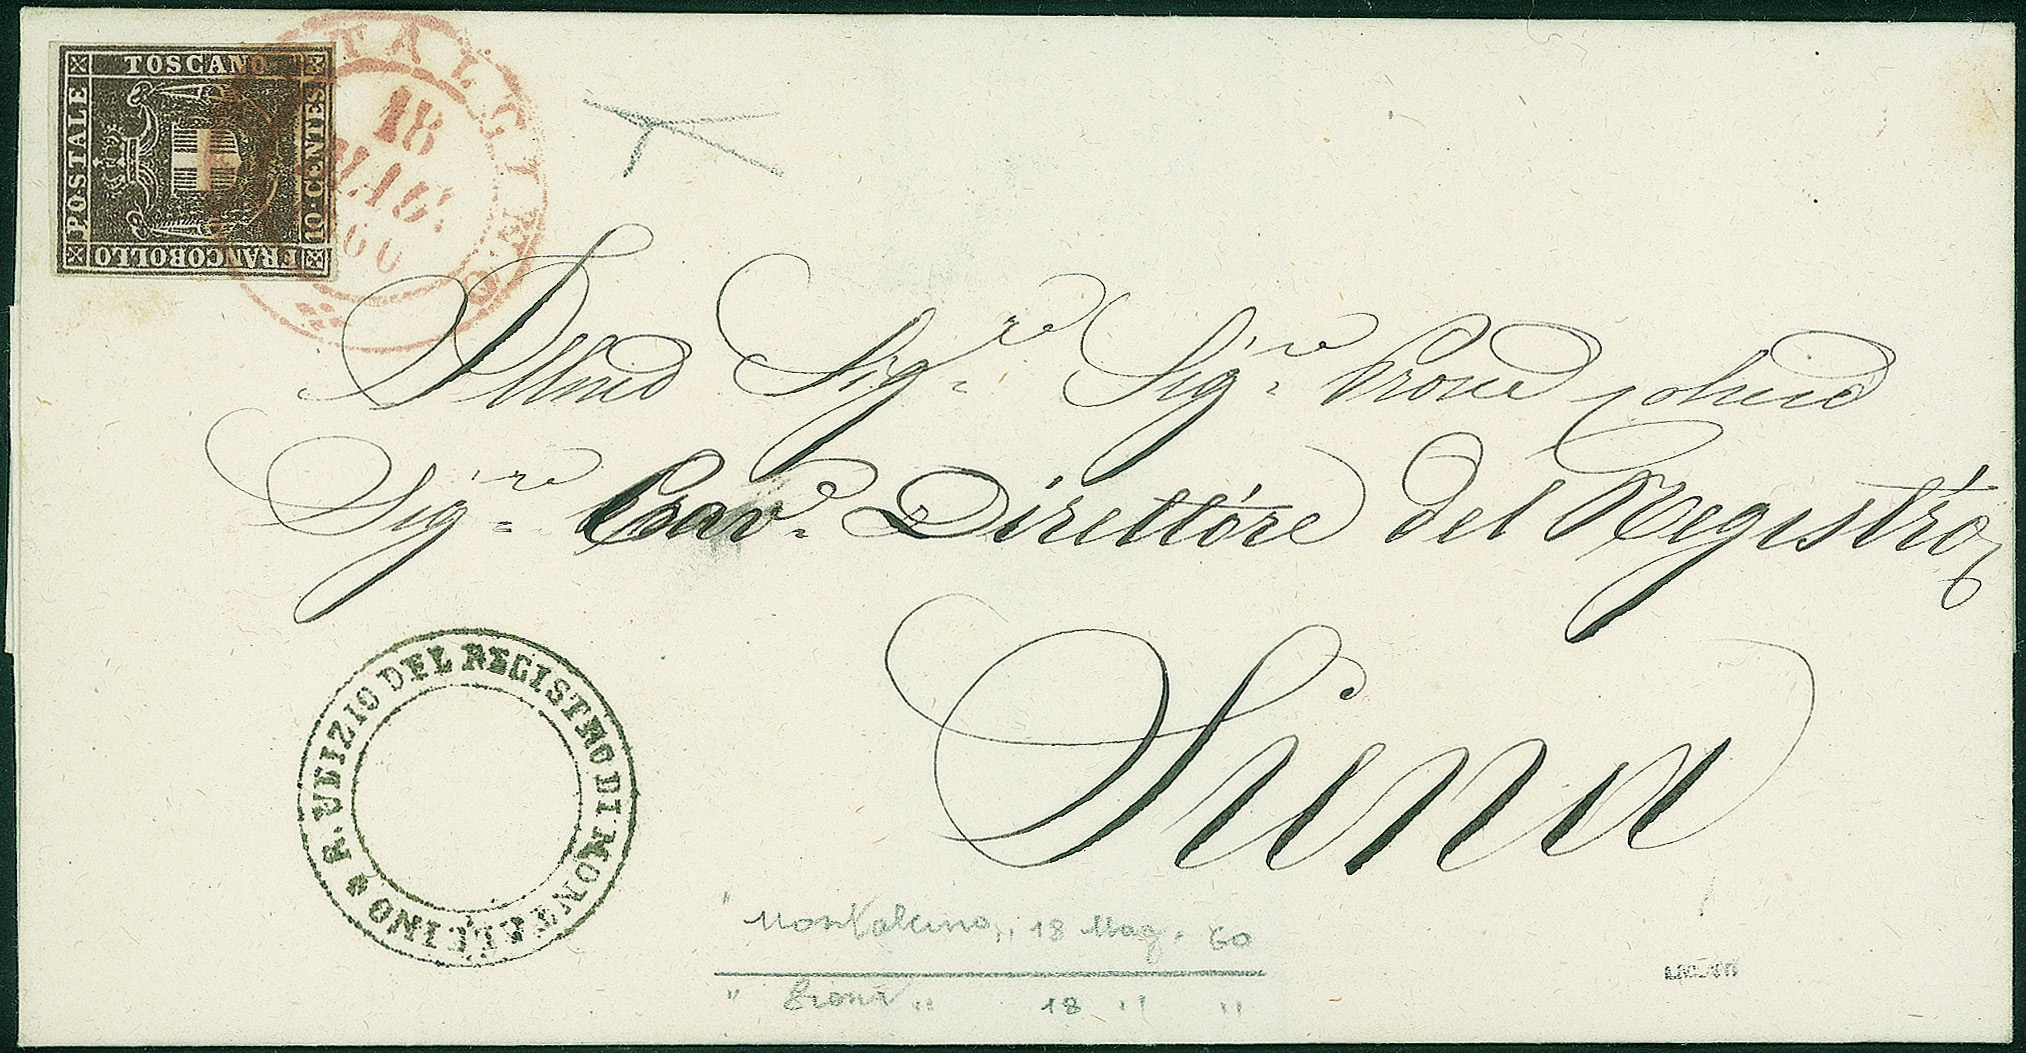 TOSCANO
POSTALE
10 CENTES
FRANCOBOLLO
MONTALCINO
18
MAG.
60
Sig.re Sig.re
Sig.re Cav.e Direttore del Registro
Siena
R. UFIZIO DEL REGISTRO DI MONTALCINO
" Montalcino,, 18 Mag. 60
" Siena ,, 18 ,, ,,